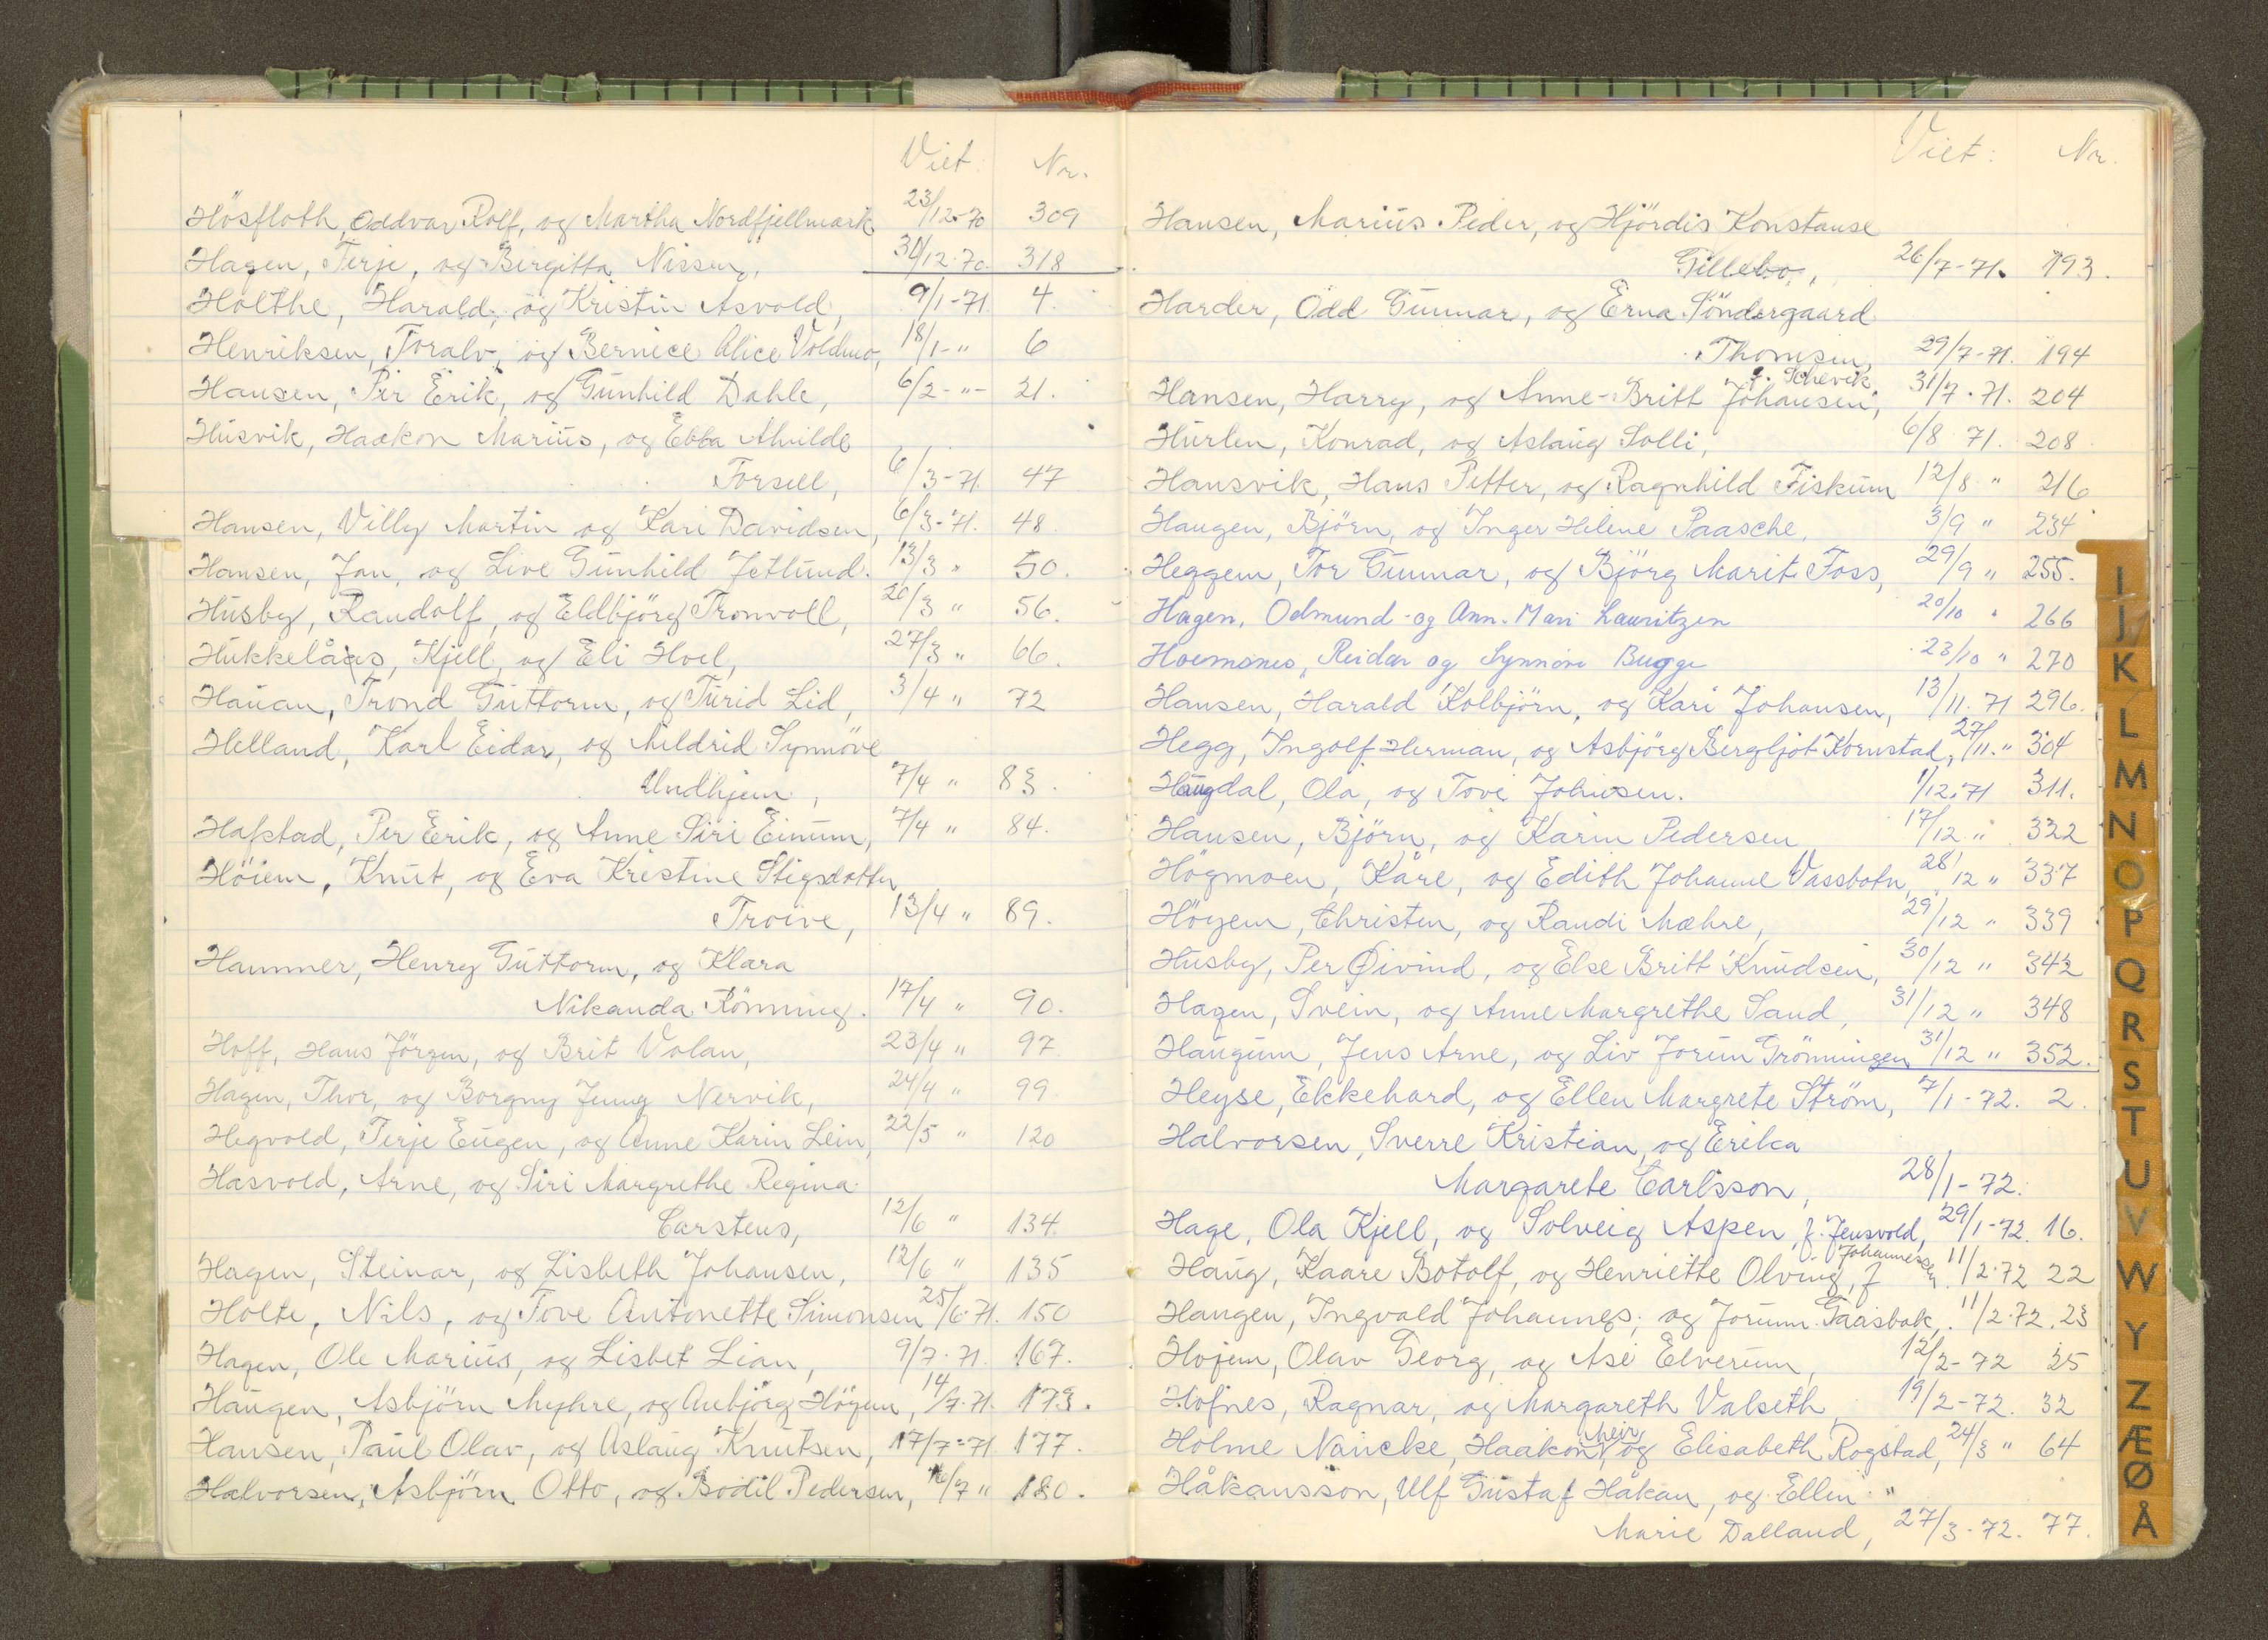 Viet: Nr.
Hösfloth, Oddvar Rolf, og Martha Nordfjellmark 23/12-70 309
Hagen, Terje, og Birgitta Nissen, 31/12-70. 318
Holthe, Harald, og Kristin Asvold, 9/1-71 4.
Henriksen, Toralv, og Bernice Alice Voldmo, 18/1-" 6
Hansen, Per Erik, og Gunhild Dahle, 6/2-"- 21.
Husvik, Haakon Marius, og Ebba Alvilde
Forsell, 6/3-71. 47
Hansen, Villy Martin og Kari Davidsen, 6/3-71. 48.
Hansen, Jan, og Live Gunhild Jetlund. 13/3 " 50.
Husby, Randolf, og Eldbjörg Tronvoll, 20/3 " 56.
Hukkelås, Kjell, og Eli Hoel, 27/3 " 66.
Hauan, Trond Guttorm, og Turid Lid, 3/4 " 72
Helland, Karl Eidar, og Mildrid Synnöve
Undhjem, 7/4 " 83.
Hafstad, Per Erik, og Anne Siri Einum, 7/4 " 84.
Höiem, Knut, og Eva Kristine Stigsdatter
Troive, 13/4 " 89.
Hammer, Henry Guttorm, og Klara
Nikanda Rönning. 17/4 " 90.
Hoff, Hans Jörgen, og Brit Volan, 23/4 " 97
Hagen, Thor, og Borgny Jenny Nervik, 24/4 " 99
Hegvold, Terje Eugen, og Anne Karin Lein, 22/5 " 120
Hasvold, Arne, og Siri Margrethe Regina
Carstens, 12/6 " 134.
Hagen, Steinar, og Lisbeth Johansen, 12/6 " 135
Holte, Nils, og Tove Antonette Simonsen 25/6-71. 150
Hagen, Ole Marius, og Lisbet Lian, 9/7-71. 167.
Haugen, Asbjörn Myhre, og Anbjörg Höyem, 14/7-71. 173.
Hansen, Paul Olav, og Aslaug Knutsen, 17/7-71 177.
Halvorsen, Asbjörn Otto, og Bodil Pedersen, 16/7 " 180.
Viet: Nr.
Hansen, Marius Peder, og Hjördis Konstanse
Gillebo, 26/7-71. 193.
Harder, Odd Gunnar, og Erna Söndergaard
Thomsen, 29/7-71. 194
Hansen, Harry, og Anne-Britt Johansen, f. Schevik 31/7-71. 204
Hurlen, Konrad, og Aslaug Solli, 6/8 71. 208
Hansvik, Hans Petter, og Ragnhild Fiskum 12/8 " 216
Haugen, Björn, og Inger Helene Paasche, 3/9 " 234
Heggem, Tor Gunnar, og Björg Marit Foss, 29/9 " 255.
Hagen, Odmund og Ann-Mari Lauritzen 20/10 " 266
Hoemsnes, Reidar og Synnöve Bugge 23/10 " 270
Hansen, Harald Kolbjörn, og Kari Johansen, 13/11.71 296.
Hegg, Ingolf Herman, og Asbjörg Bergljot Kornstad, 27/11." 304
Haugdal, Ola, og Tove Johnsen. 1/12.71 311.
Hansen, Björn, og Karin Pedersen 17/12 " 322
Högmoen, Kåre, og Edith Johanne Vassbotn, 28/12 " 337
Höyem, Christen, og Randi Mæhre, 29/12 " 339
Husby, Per Øivind, og Else Britt Knudsen, 30/12 " 342
Hagen, Svein, og Anne Margrethe Sand, 31/12 " 348
Haugum, Jens Arne, og Liv Jorun Grönningen 31/12 " 352.
Heyse, Ekkehard, og Ellen Margrete Strøm, 7/1-72. 2.
Halvorsen, Sverre Kristian, og Erika
Margarete Carlsson, 28/1-72.
Hage, Ola Kjell, og Solveig Aspen, f. Jensvold, 29/1-72. 16.
Haug, Kaare Botolf, og Henriette Olving, f Johannessen 11/2-72 22
Haugen, Ingvald Johannes, og Jorunn Gaasbak, 11/2-72. 23
Hojem, Olav Georg, og Ase Elverum, 12/2-72 25
Hofnes, Ragnar, og Margareth Valseth, 19/2-72. 32
Holme Nancke, Haakon, og Elisabeth Rogstad, 24/3 " 64
Håkansson, Ulf Gustaf Håkan, og Ellin
Marie Dalland, 27/3-72. 77.
I
J
K
L
M
N
O
P
Q
R
S
T
U
V
W
Y
Z
Æ
Ø
Å